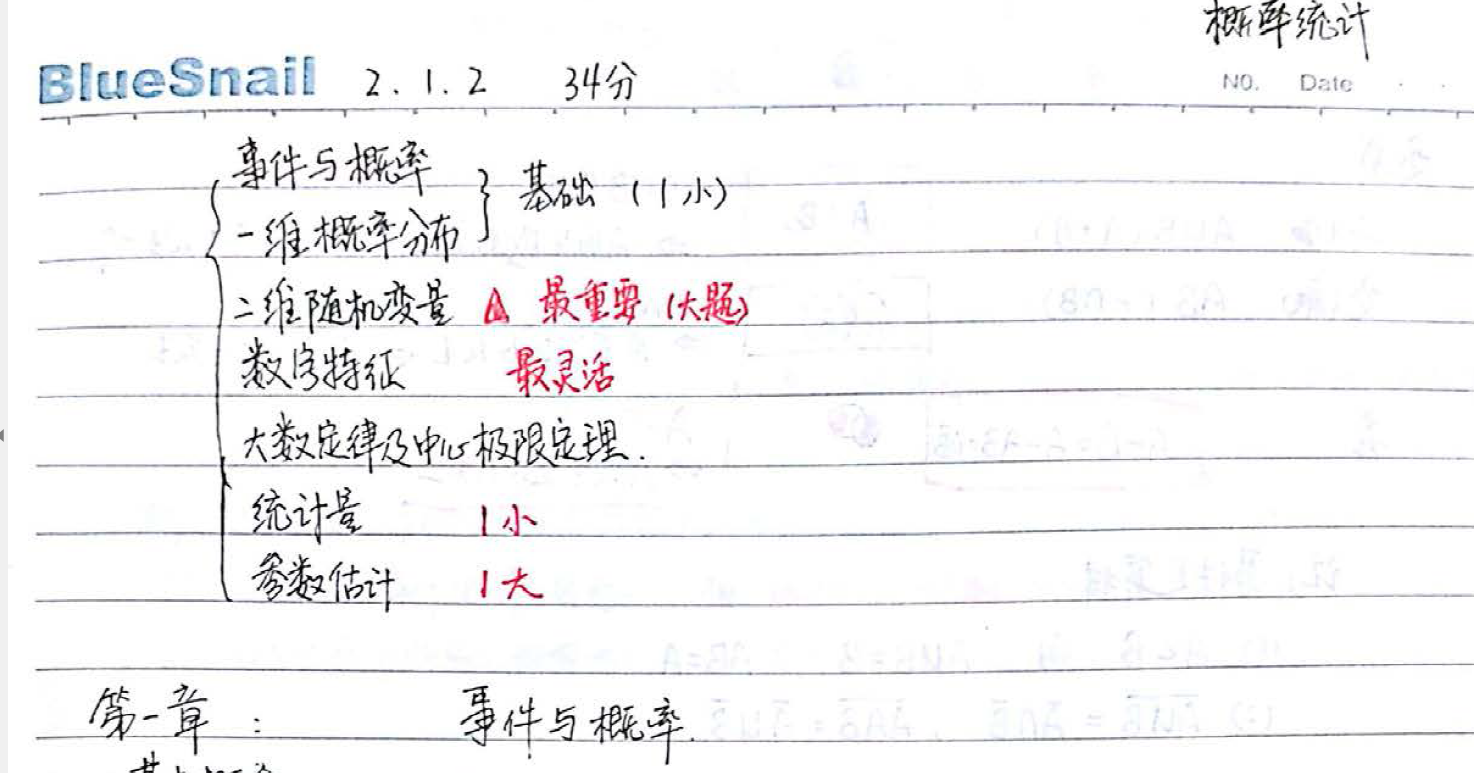 概率统计
BlueSnail 2.1.2 34分 NO. Date
事件与概率
一维概率分布 } 基础 (1小)
二维随机变量 △ 最重要 (大题)
数字特征 最灵活
大数定律及中心极限定理.
统计量 1小
参数估计 1大
第一章: 事件与概率.